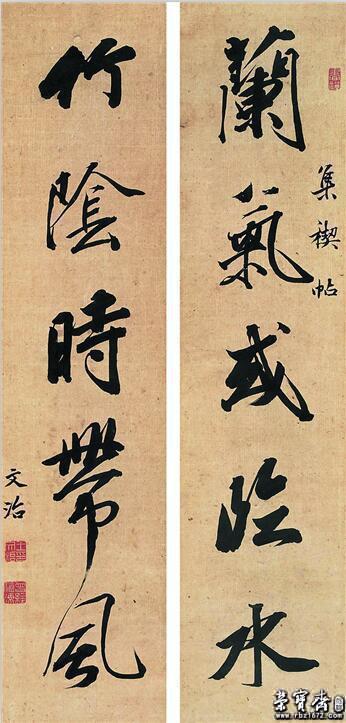 蘭氣或臨水
集禊帖
竹陰時帶風
文治
榮寶齋
www.rbz1672.com